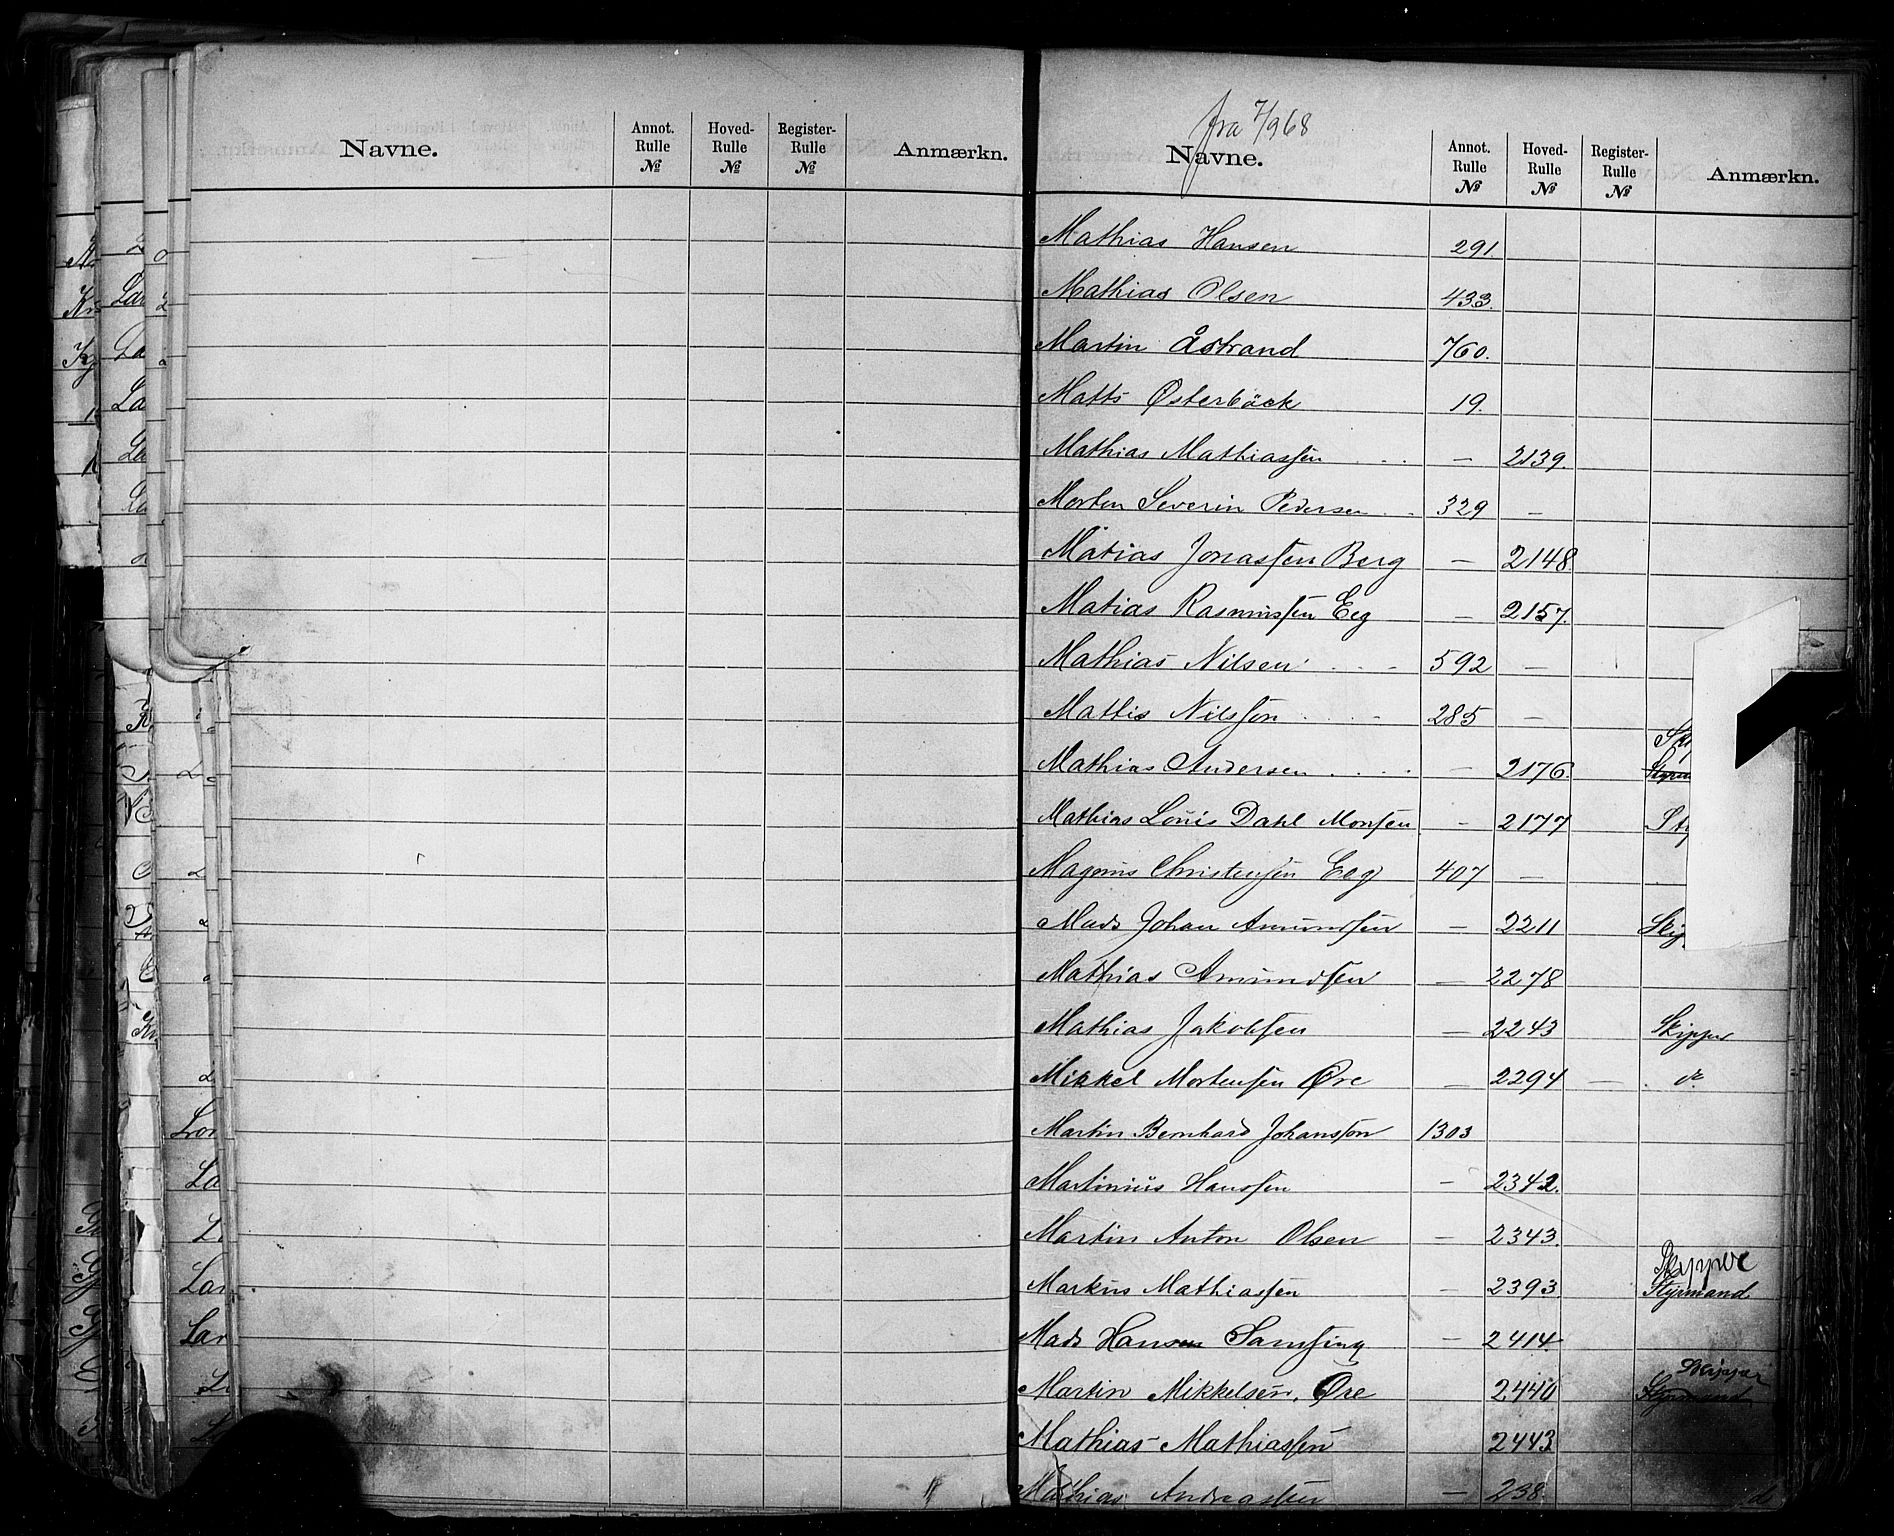 Navne. Annot. Rulle № Hoved- Rulle № Register- Rulle № Anmærkn.
fra 7/9 68
Navne. Annot. Rulle № Hoved- Rulle № Register- Rulle № Anmærkn.
Mathias Hansen 291
Mathias Olsen 433.
Martin Åstrand 760.
Matts Østerbäck 19.
Mathias Mathiassen — 2139.
Morten Severin Pedersen 329 —
Matias Jonassen Berg — 2148
Matias Rasmussen Eeg — 2157.
Mathias Nilsen 592 —
Mattis Nilsson 285 —
Mathias Andersen — 2176.
Mathias Louis Dahl Monsen - 2177
Magnus Christensen Eeg 407 —
Mads Johan Amundsen — 2211
Mathias Amundsen — 2278
Mathias Jakobsen — 2243 Skipper
Mikkel Mortensen Øre — 2294 —
Martin Bernhard Johansson 1303
Martinius Hanssen - 2342.
Martin Anton Olsen - 2343.
Skipper
Markus Mathiassen - 2393 Styrmand
Mads Hansen Samsing — 2414
Skipper
Martin Mikkelsen Øre 2440 Styrmand
Mathias Mathiassen 2443
Mathias Andreassen — 238